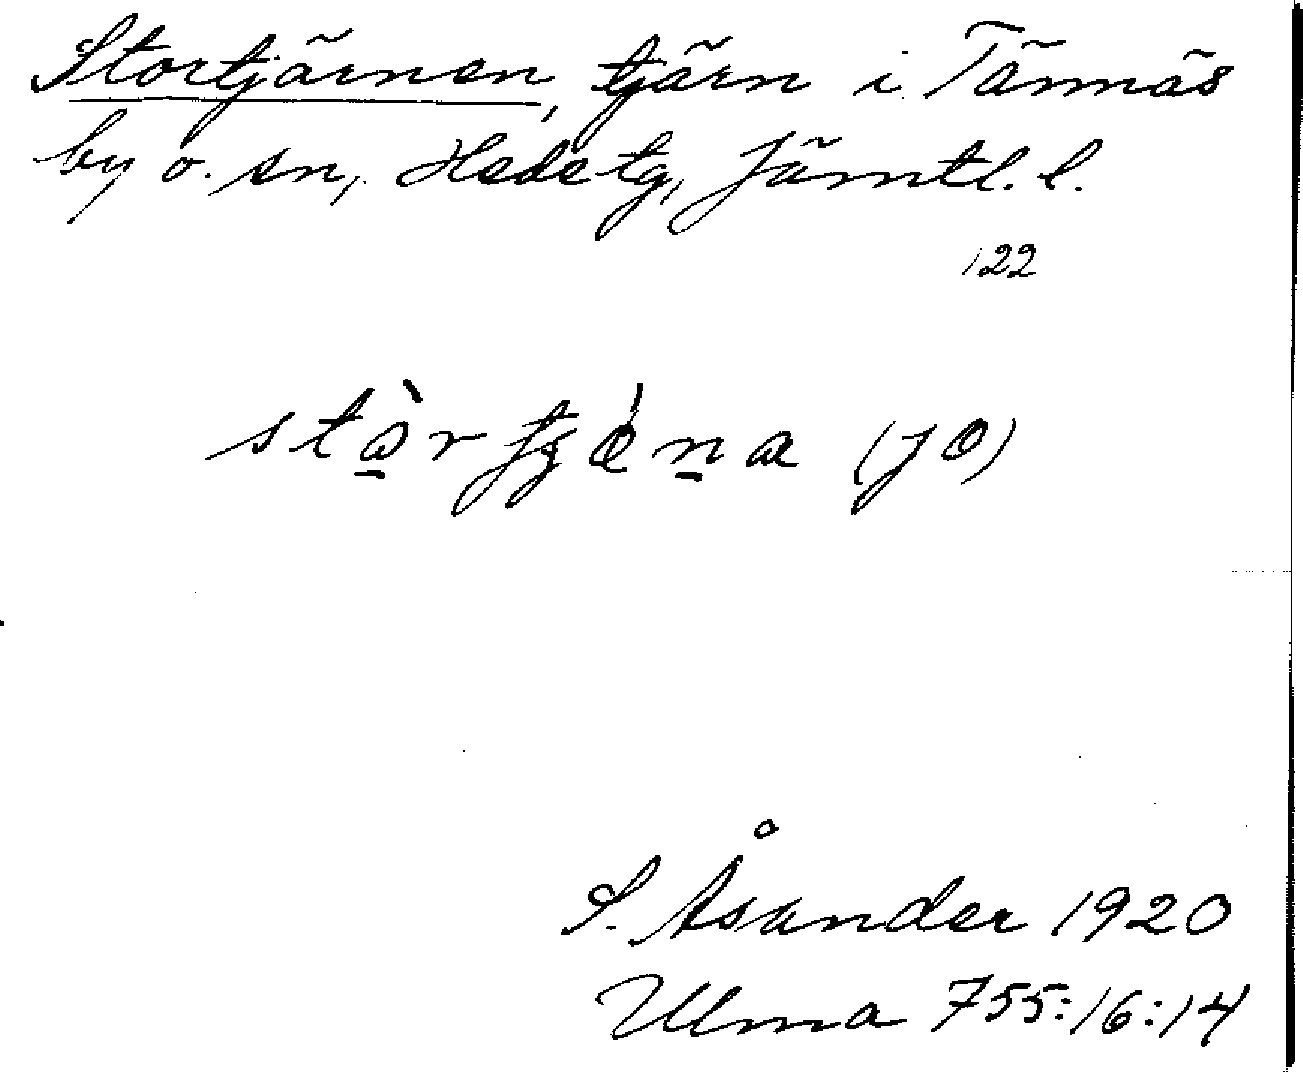 Stortjärnen, tjärn i Tännäs
by o. sn, Hede tg, Jämtl. l.
122
(JO)
S. Åsander 1920
Ulma 755:16:14